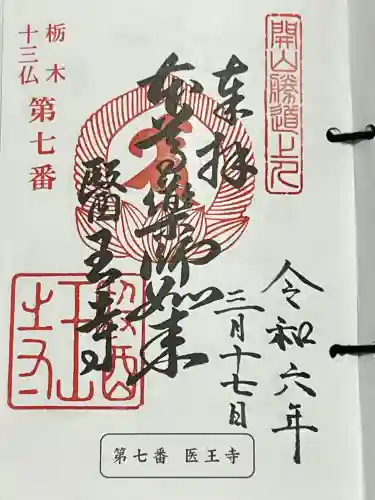 開山勝道上人
奉拝
令和六年
三月十七日
本尊薬師如来
醫王寺
栃木
十三仏
第七番
第七番 医王寺